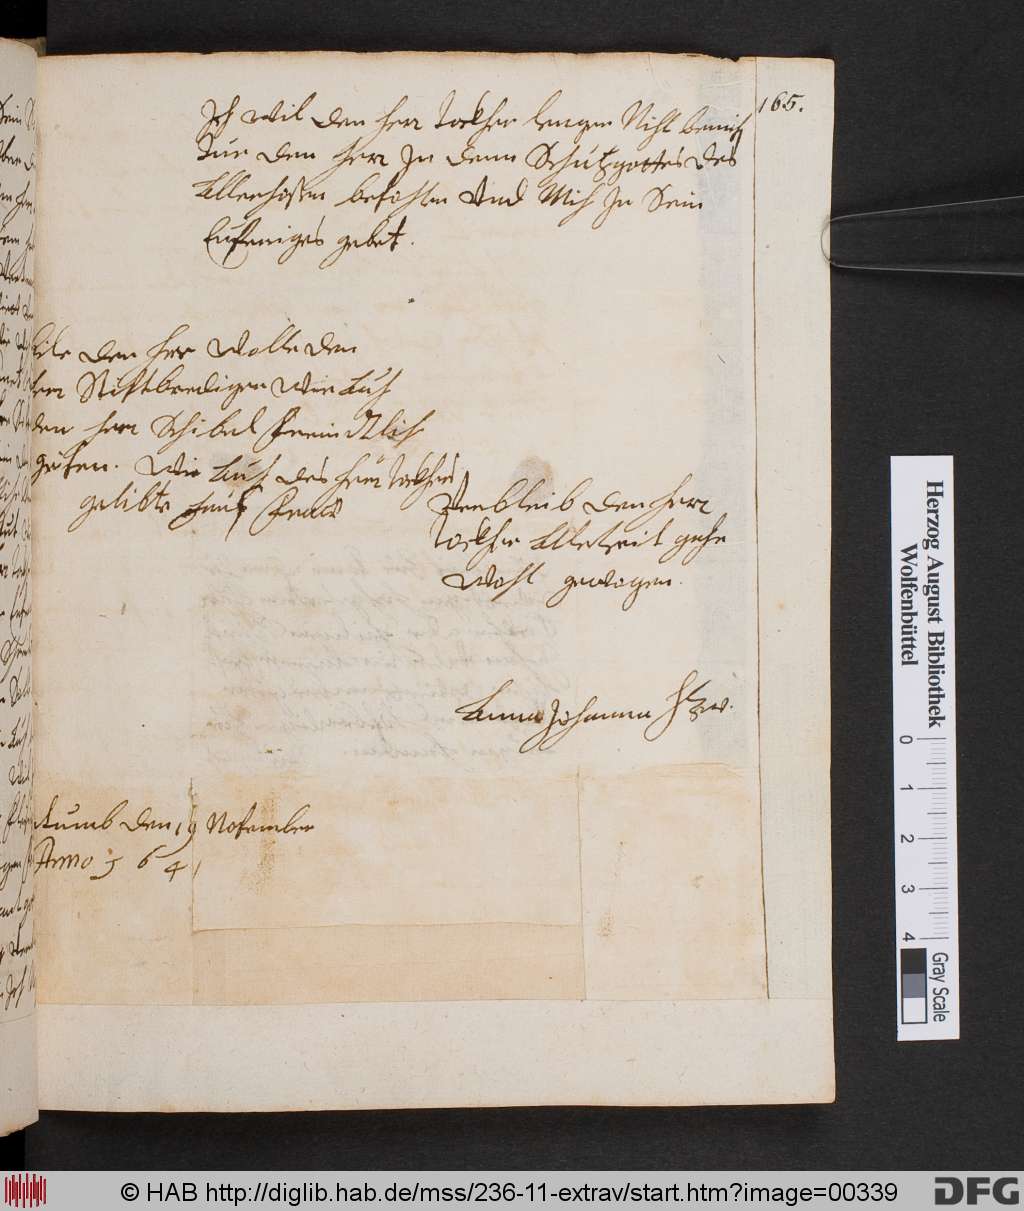 165.
Ich wil den herr dockher lenger Niht bemieh
Tue den herr In denn Schutz gottes des
Allerhochsten befohlen Vnd Mich In Sein
Eufferiges gebet.
den herr Wolle den
herr Stiftbrediger wie Auch
den herr Schibel freindtlich
griesen. Wie Auch des herrn dockhers
gelibte hauß frauw
Verbleib den herr
dockher Alletzeit gahr
Wohl gewogen.
Anna Johanna
den 19 November
Anno 164
Herzog August Bibliothek
Wolfenbüttel
0 1 2 3 4
Gray Scale
© HAB http://diglib.hab.de/mss/236-11-extrav/start.htm?image=00339
DFG